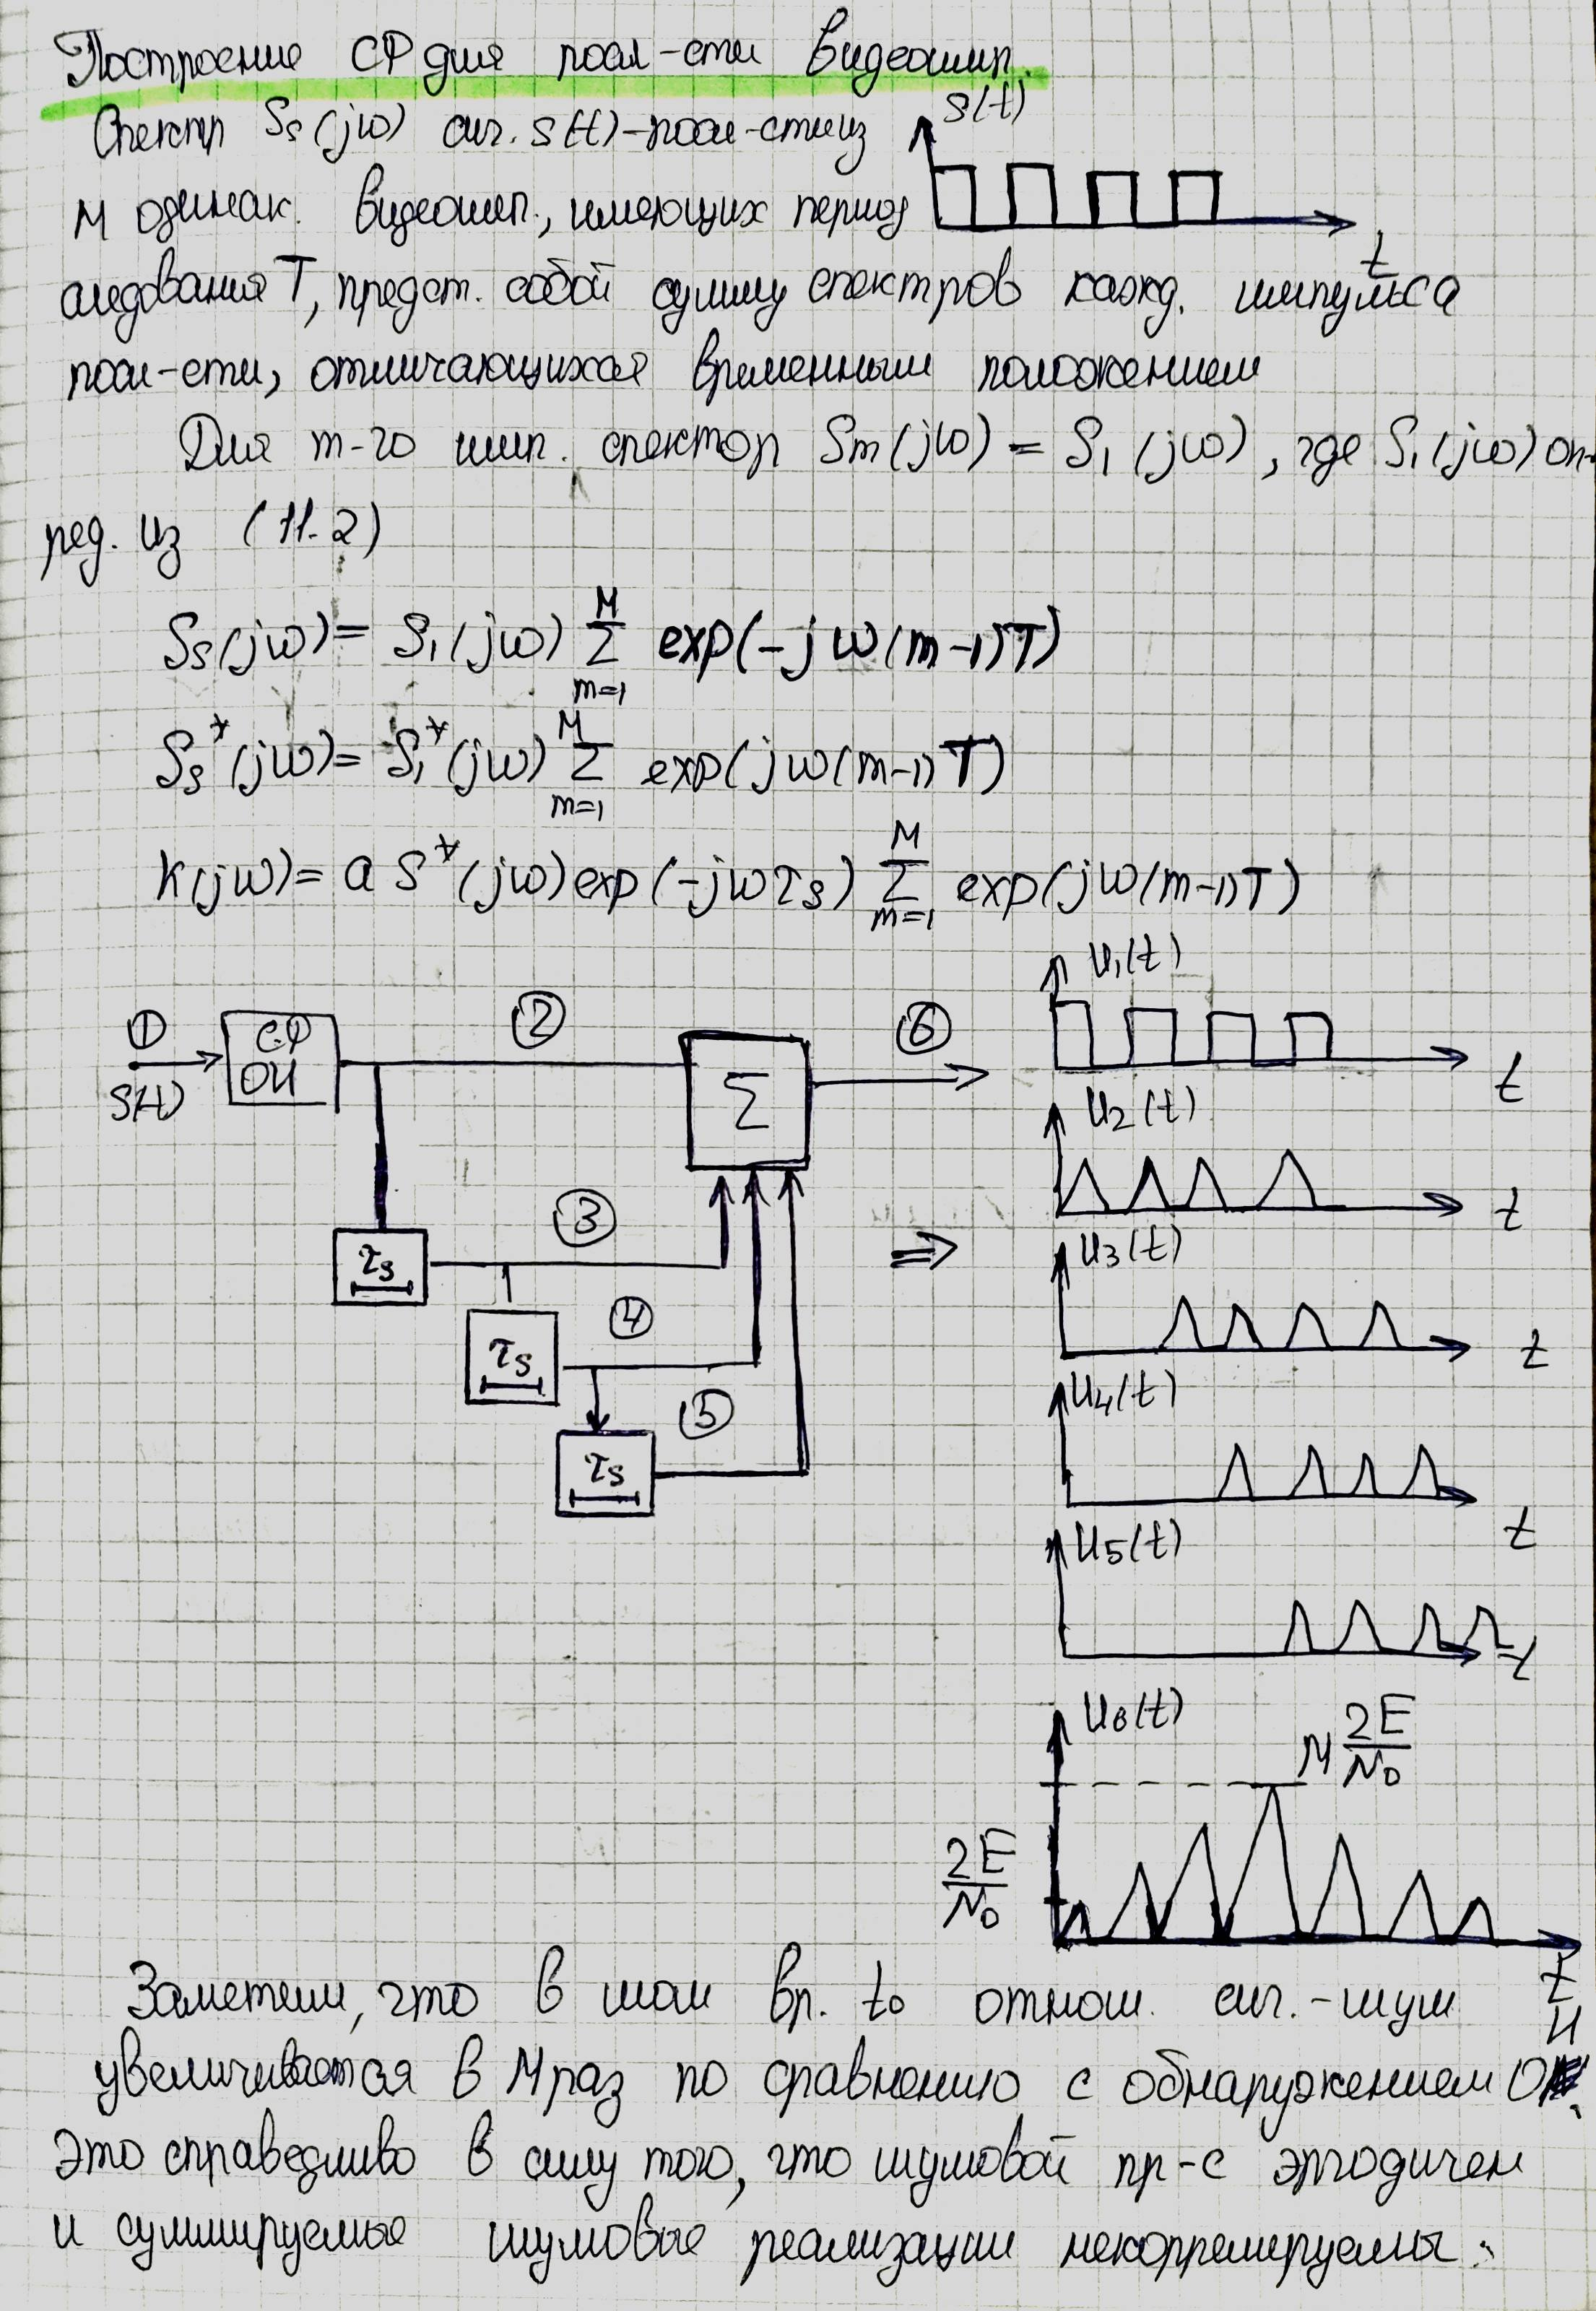 Построение СФ для посл-сти видеоимп.
Спектр Ss(jω) сиг. s(t)-посл-сти из
s(t)
M одинак. видеоимп., имеющих период
t
следования T, предст. собой сумму спектров кажд. импульса
посл-сти, отличающихся временным положением
Для m-го имп. спектор Sm(jω) = S1(jω), где S1(jω) оп-
ред. из (11.2)
Ss(jω) = S1(jω) M Σ m=1 exp(-jω(m-1)T)
Ss*(jω) = S1*(jω) M Σ m=1 exp(jω(m-1)T)
K(jω) = a S*(jω) exp(-jωτs) M Σ m=1 exp(jω(m-1)T)
① s(t)
СФ
ОИ
②
Σ
⑥
③
τs
④
τs
⑤
τs
⇒
U1(t)
t
U2(t)
t
U3(t)
t
U4(t)
t
U5(t)
t
U6(t)
M 2E/N0
2E/N0
t
Заметим, что в мом вр. t0 отнош. сиг.-шум
увеличивается в M раз по сравнению с обнаружением ОИ.
Это справедливо в силу того, что шумовой пр-с эргодичен
и суммируемые шумовые реализации некоррелируемы.